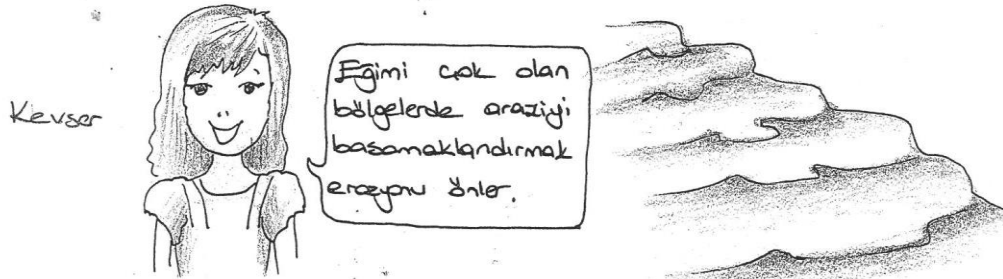 Kevser
Eğimi çok olan
bölgelerde araziyi
basamaklandırmak
erozyonu önler.